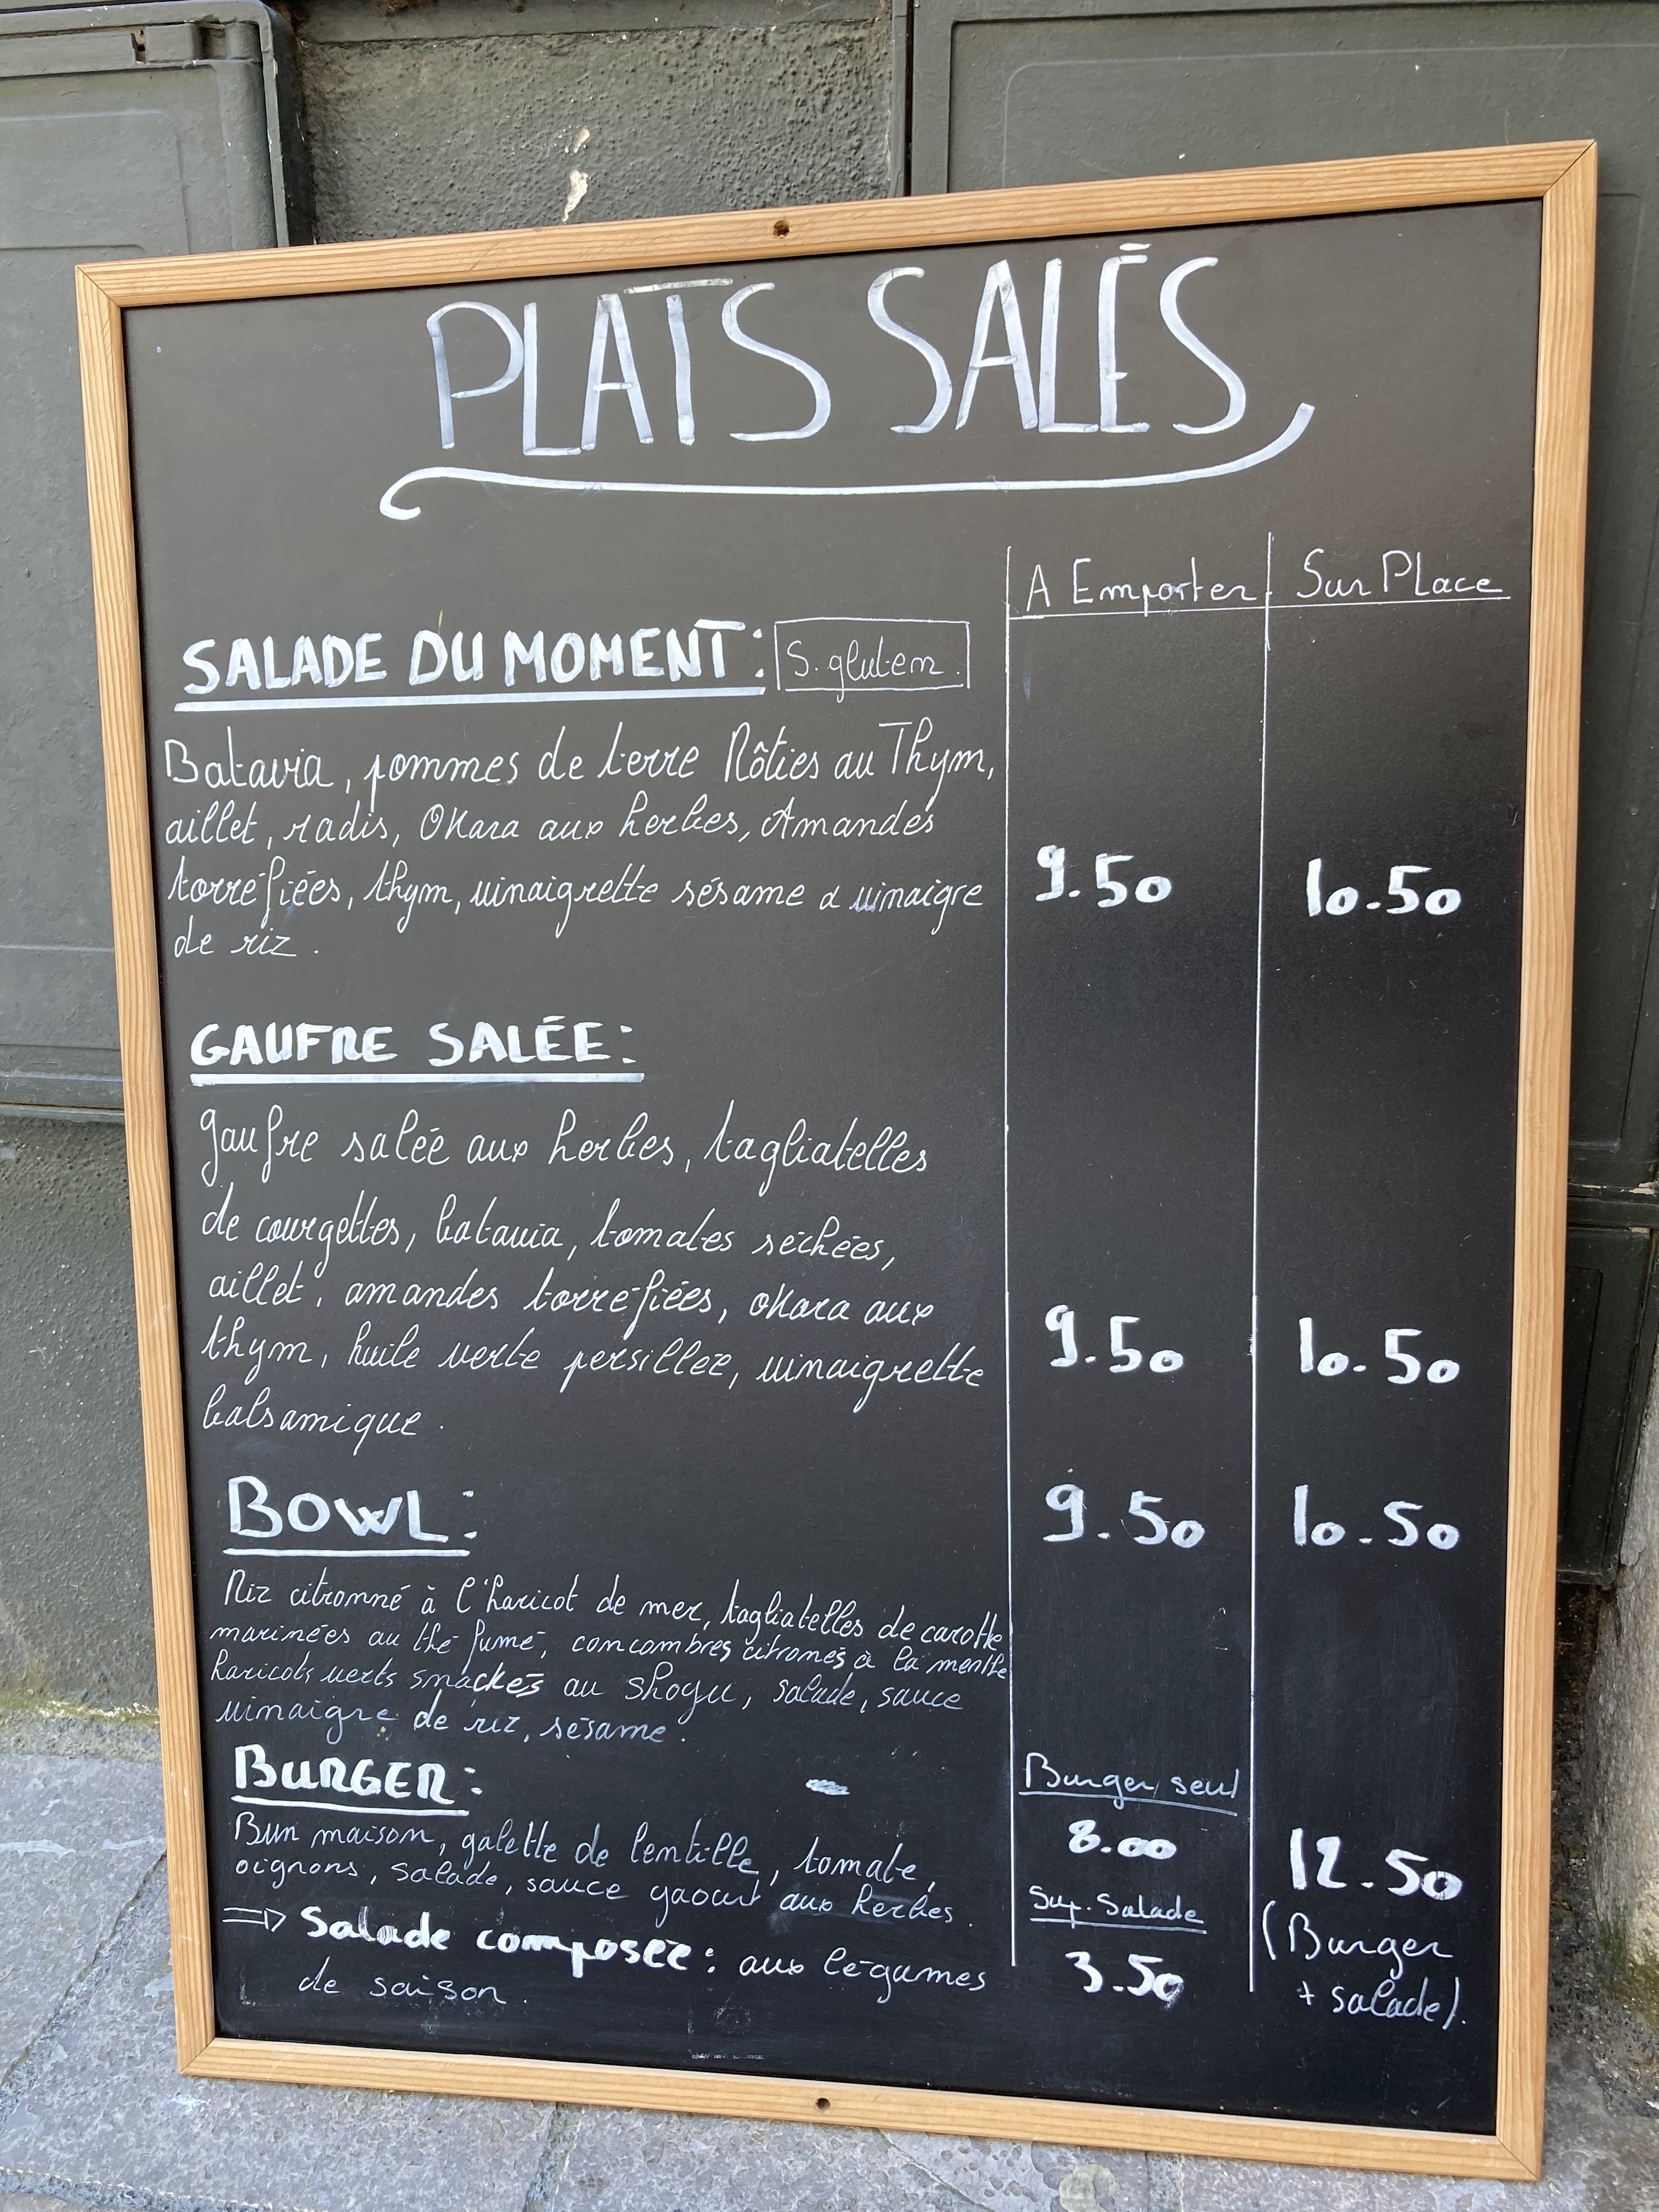 PLATS SALÉS
A Emporter Sur Place
SALADE DU MOMENT: S. gluten.
Batavia, pommes de terre Rôties au Thym,
aillet, radis, Okara aux herbes, Amandes
torréfiées, thym, vinaigrette sésame & vinaigre
de riz.
9.50 10.50
GAUFRE SALÉE:
Gaufre salée aux herbes, tagliatelles
de courgettes, batavia, tomates séchées,
aillet, amandes torréfiées, okara aux
thym, huile verte persillée, vinaigrette
balsamique.
9.50 10.50
BOWL: 9.50 10.50
Riz citronné à l'haricot de mer, tagliatelles de carotte
marinées au thé fumé, concombres citronés à la menthe
haricots verts snackés au shoyu, salade, sauce
vinaigre de riz, sésame.
BURGER:
Bun maison, galette de lentille, tomate,
oignons, salade, sauce yaourt aux herbes.
⇒ Salade composée: aux légumes
de saison.
Burger seul
8.00
Sup. Salade
3.50
12.50
(Burger
+ salade).